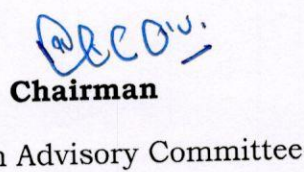 Chairman
n Advisory Committee